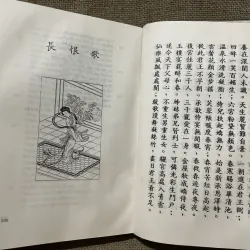 養在深閨人未識，天生麗質難自棄，一朝選在君王側，
回眸一笑百媚生，六宮粉黛無顏色。春寒賜浴華清池，
溫泉水滑洗凝脂；侍兒扶起嬌無力，始是新承恩澤時。
雲鬢花顏金步搖，芙蓉帳暖度春宵；春宵苦短日高起，
從此君王不早朝。承歡侍宴無閑暇，春從春遊夜專夜。
後宮佳麗三千人，三千寵愛在一身。金屋妝成嬌侍夜，
玉樓宴罷醉和春。姊妹弟兄皆列士，可憐光彩生門戶；
遂令天下父母心，不重生男重生女。驪宮高處入青雲，
仙樂風飄處處聞；緩歌慢舞凝絲竹，盡日君王看不足。
長恨歌